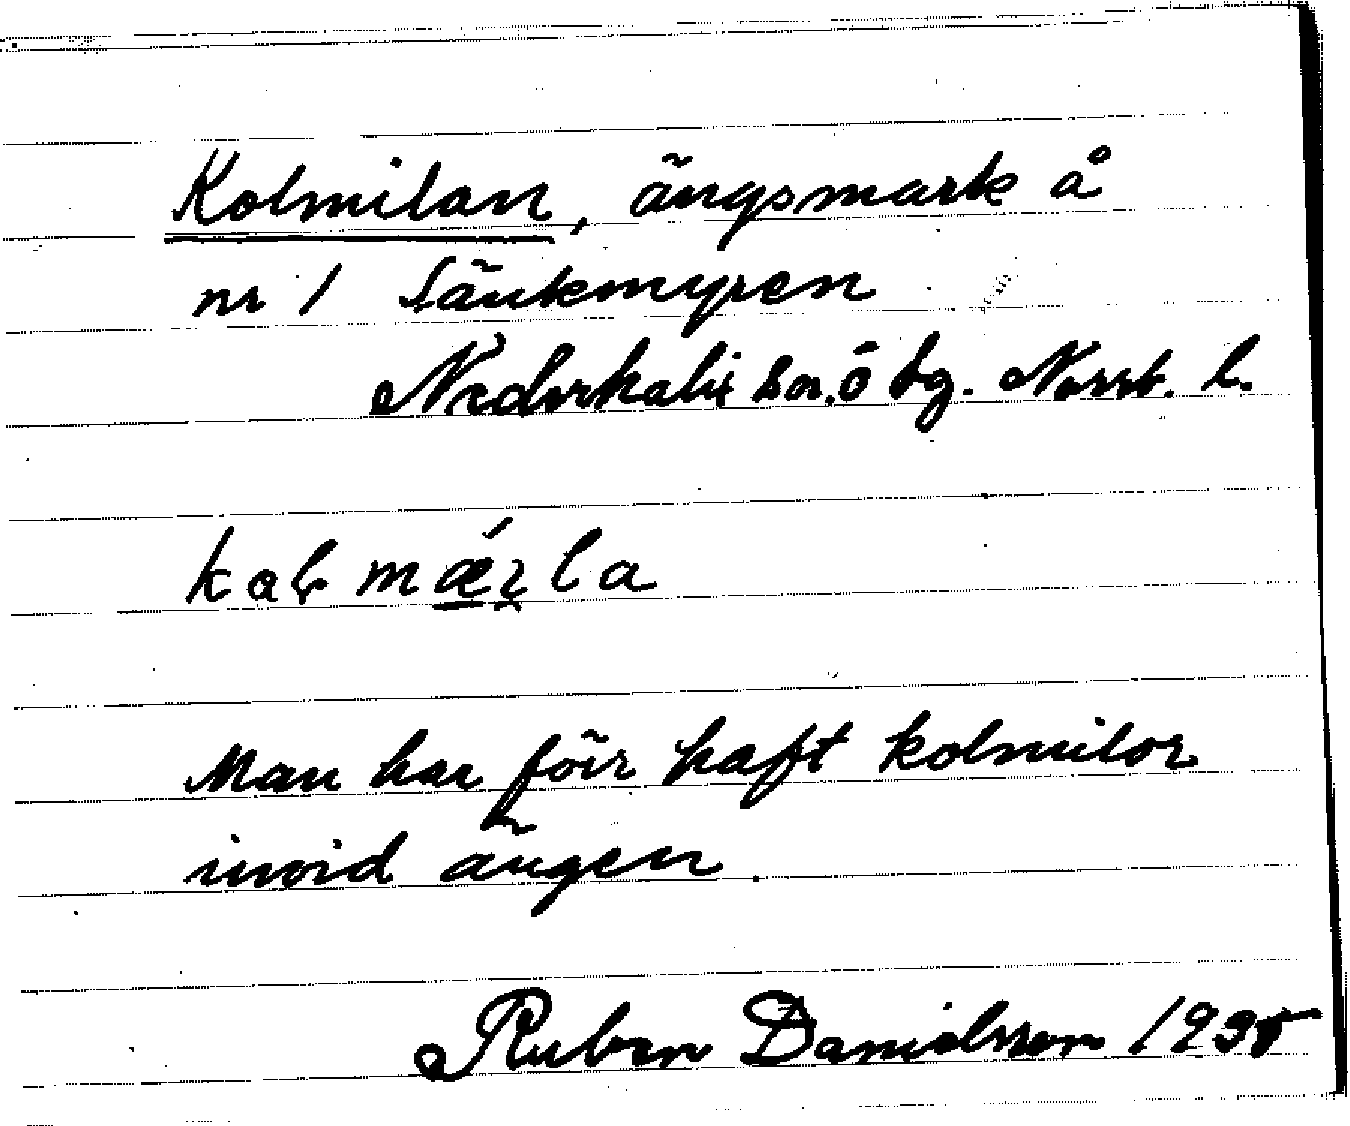 Kolmilan, ängsmark å
nr 1 Säukmyren
Nederkalix sn. ö bg. Norrb. l.
kolmǽrla
Man har förr haft kolmilor
invid ängen.
Ruben Danielsson 1935